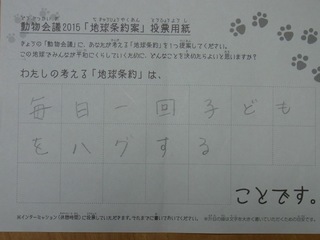 動物会議2015「地球条約案」投票用紙
きょうの「動物会議」に、あなたが考える「地球条約」を1つ提案してください。
この地球でみんなが平和にくらしていくために、どんなことを決めたらよいと思いますか？
わたしの考える「地球条約」は、
毎日一回子ども
をハグする
ことです。